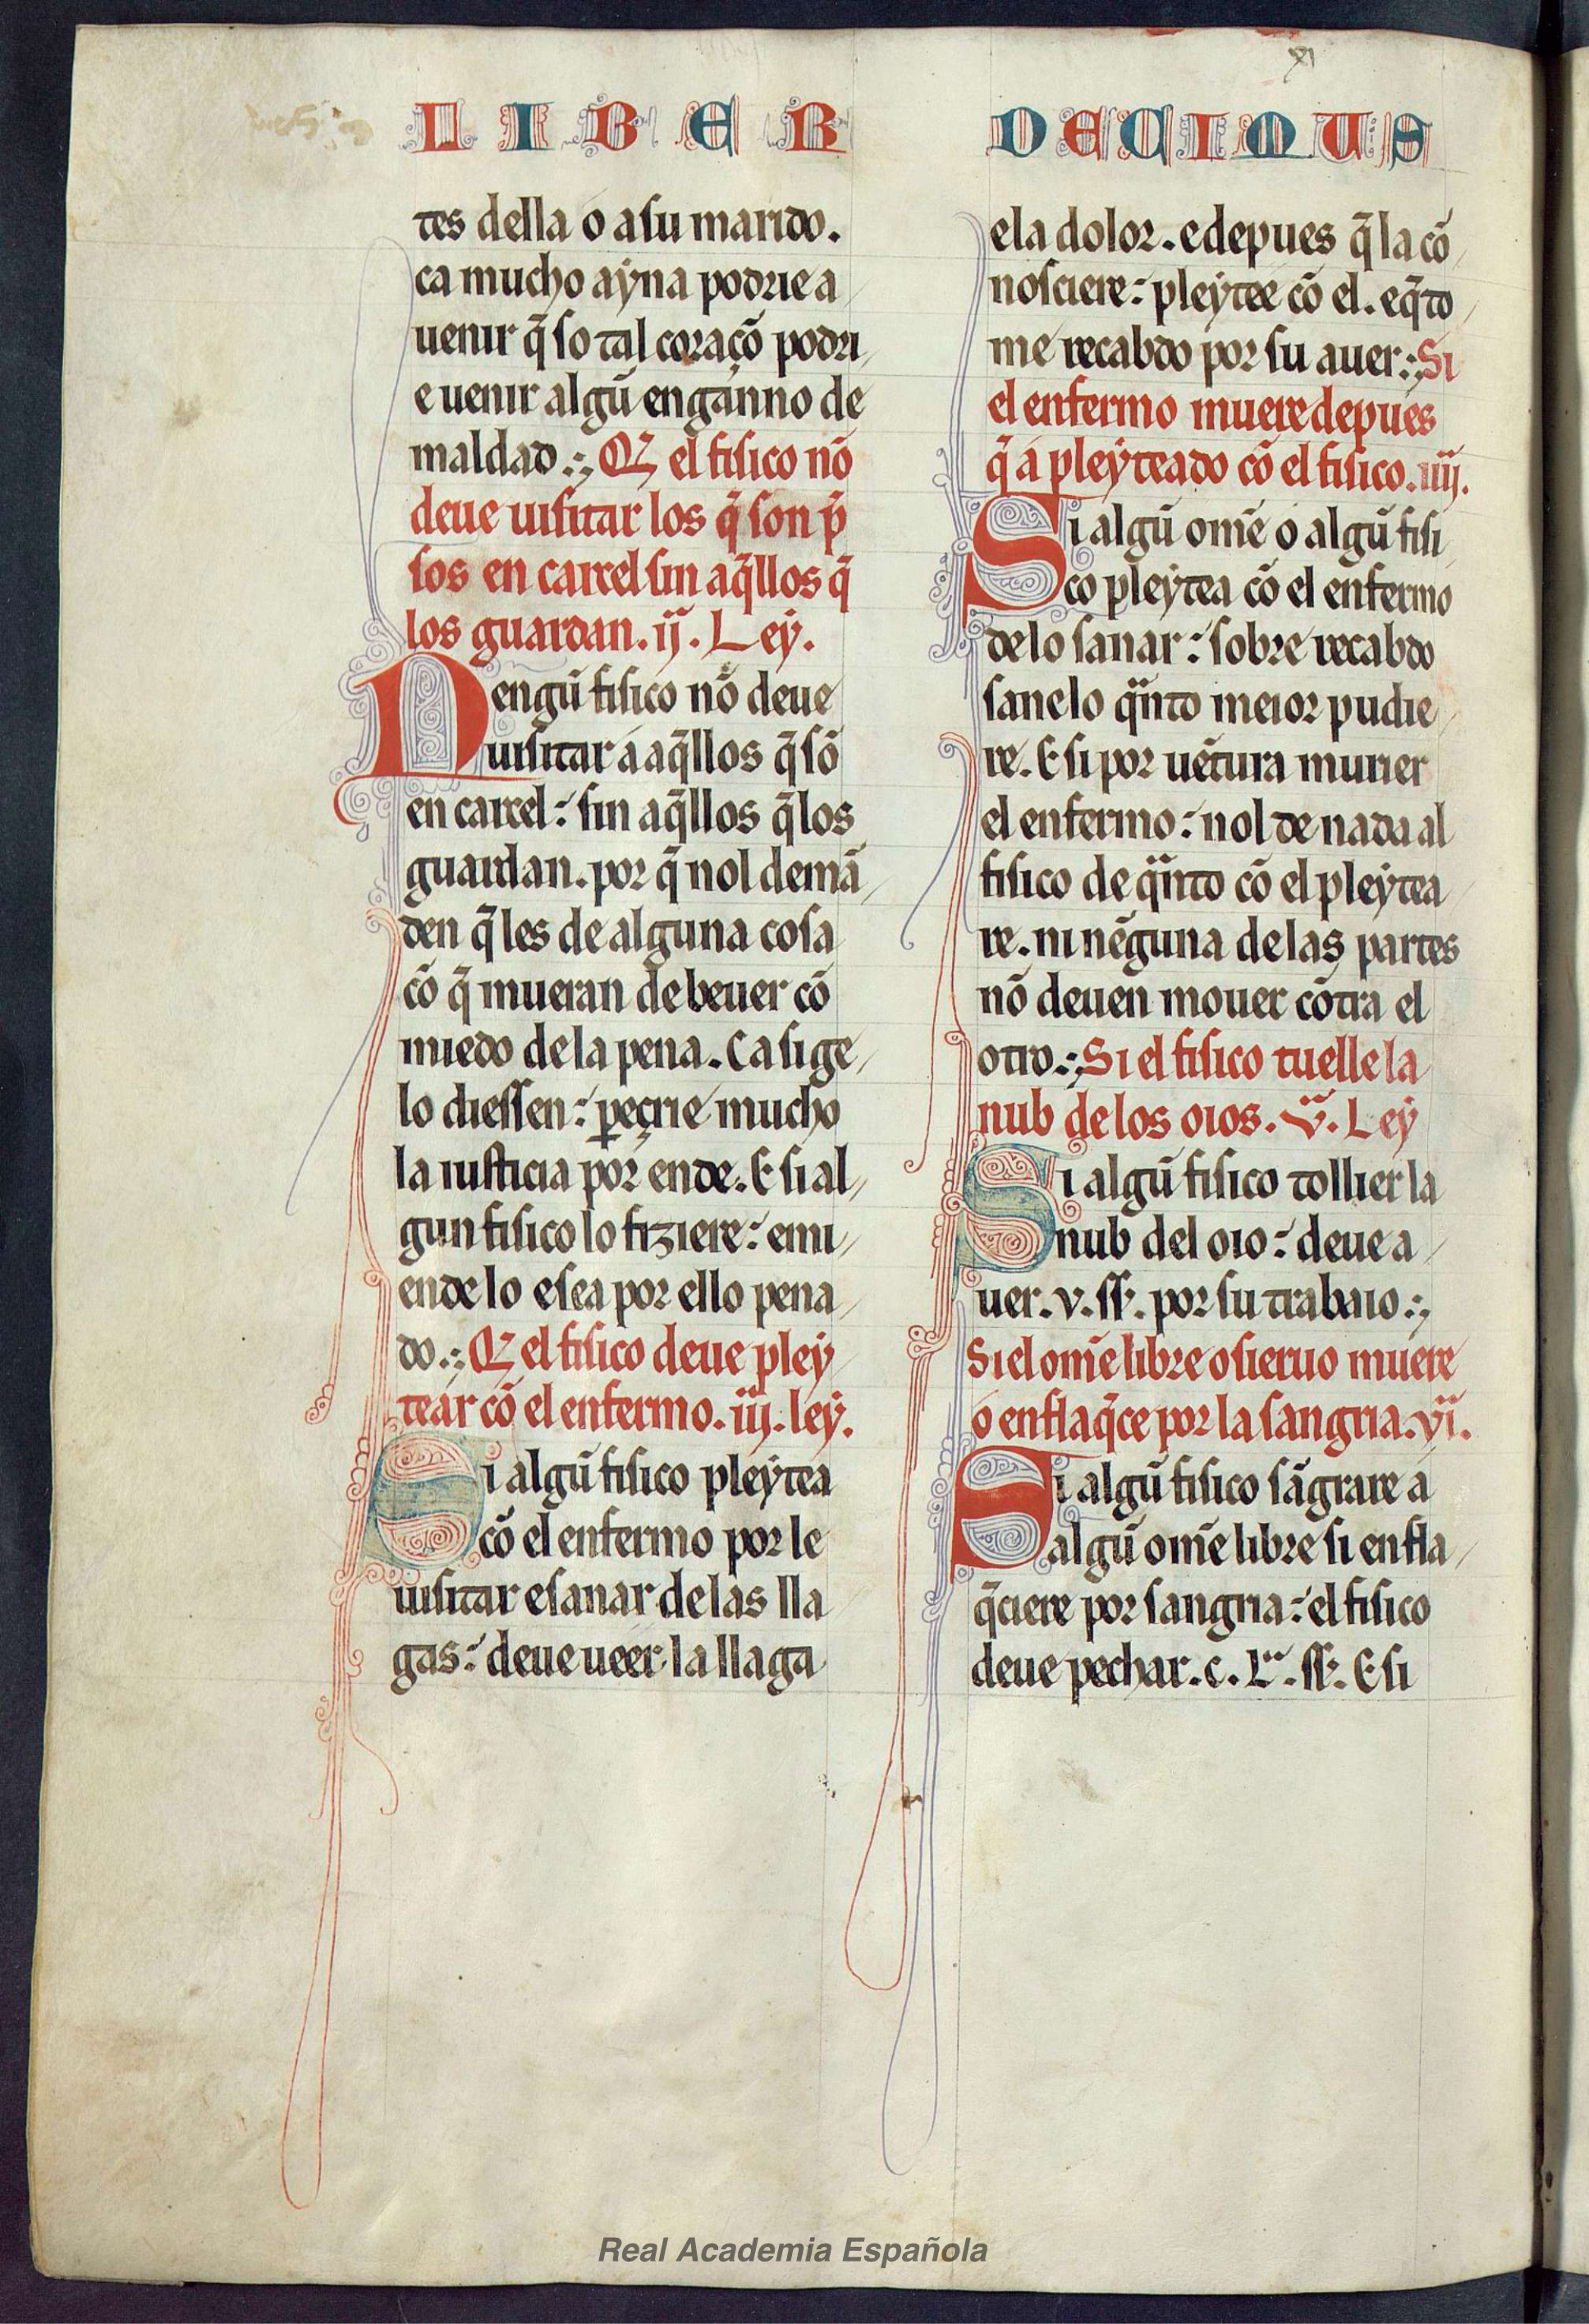 XI
LIBER DECIMUS
tes della o a su marido.
ca mucho aẏna podrie a
uenir q̃ so tal coraçõ podri
e uenir algũ enganno de
maldad.:, Q el fisico nõ
deue uisitar los q̃ son p̃
sos en carcel sin aq̃llos q̃
los guardan. ij. Leẏ.
Nengũ fisico nõ deue
uisitar a aq̃llos q̃ sõ
en carcel: sin aq̃llos q̃ los
guardan. por q̃ nol demã
den q̃ les de alguna cosa
cõ q̃ mueran de beuer cõ
miedo de la pena. Ca si ge
lo diessen: p̲eçrie mucho
la iusticia por ende. E si al
gun fisico lo fiziere: emi
ende lo e sea por ello pena
do.:, Q el fisico deue pleẏ
tear cõ el enfermo. iij. leẏ.
Si algũ fisico pleẏtea
cõ el enfermo por le
uisitar e sanar de las lla
gas: deue ueer la llaga
e la dolor. e depues q̃ la cõ
nosciere: pleẏtee cõ el. e q̃ to
me recabdo por su auer:, Si
el enfermo muere depues
q̃ a pleẏteado cõ el fisico. iiij.
Si algũ om̃e o algũ fisi
co pleẏtea cõ el enfermo
de lo sanar: sobre recabdo
sanelo q̃nto meior pudie
re. E si por uẽtura murier
el enfermo: nol de nada al
fisico de q̃nto cõ el pleẏtea
re. ni nẽguna de las partes
nõ deuen mouer cõtra el
otro.:, Si el fisico tuelle la
nub de los oios. v. Leẏ
Si algũ fisico tollier la
nub del oio: deue a
uer. v. ss. por su trabaio.:,
Si el om̃e libre o sieruo muere
o enflaq̃ce por la sangria. vi.
Si algũ fisico sãgrare a
algũ om̃e libre si enfla
q̃ciere por sangria: el fisico
deue pechar. c. L. ss. E si
Real Academia Española